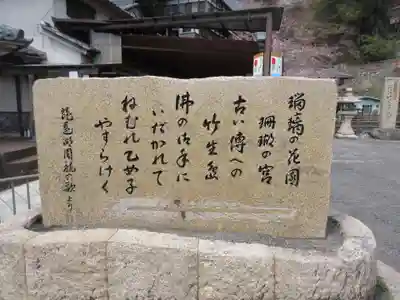 瑠璃の花園
珊瑚の宮
古い傳への
竹生島
佛の御手に
いだかれて
ねむれ乙女子
やすらけく
琵琶湖周航の歌より